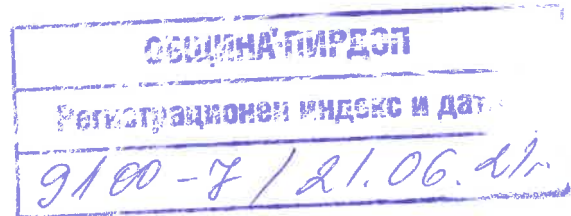 ОБЩИНА ПИРДОП
Регистрационен индекс и дата
9100-7/21.06.21г.